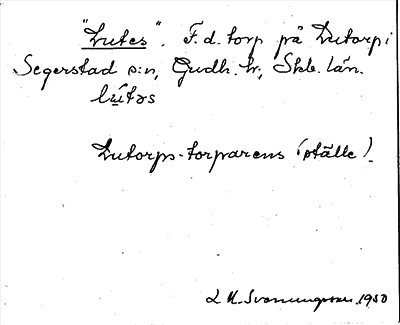 "Lutes". F.d. torp på Lutorp i
Segerstad s:n, Gudh. hr, Skb. län.
lu̲təs
Lutorps-torparens (ställe).
L M. Svenungsson 1950